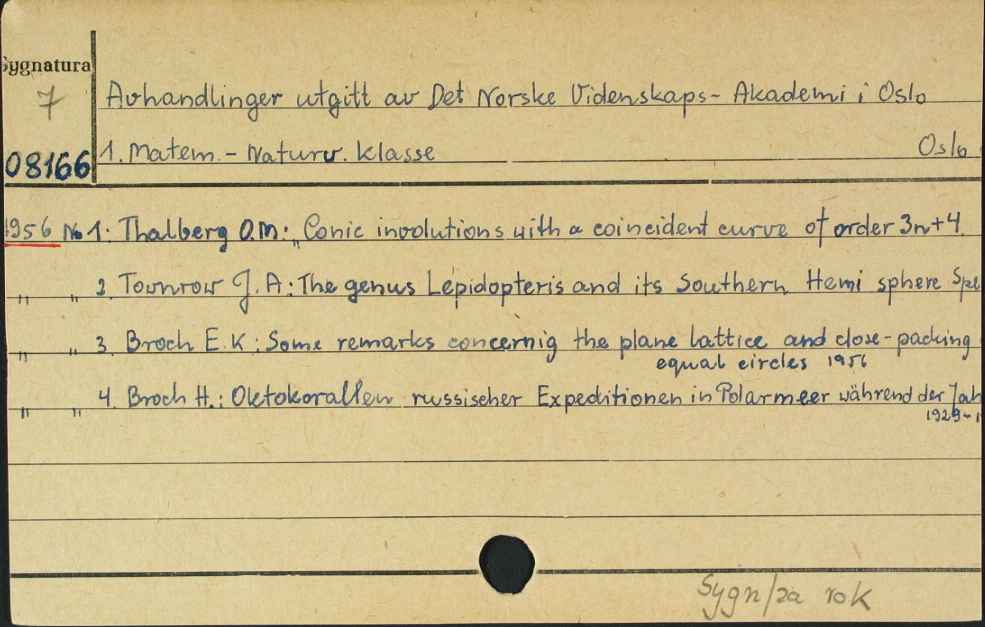 Sygnatura
7
Avhandlinger utgitt av Det Norske Videnskaps- Akademi i Oslo
08166
1. Matem. - Naturv. Klasse Oslo
1956 No 1: Thalberg O.M: „Conic involutions with a coincident curve of order 3n+4.
" " 2. Townrow J. A: The genus Lepidopteris and its Southern Hemi sphere Spe
" " 3. Broch E. K: Some remarks concernig the plane lattice and close-packing
equal circles 1956
" " 4. Broch H.: Oktokorallen russischer Expeditionen in Polarmeer während der Jah
1929-1
Sygn/za rok